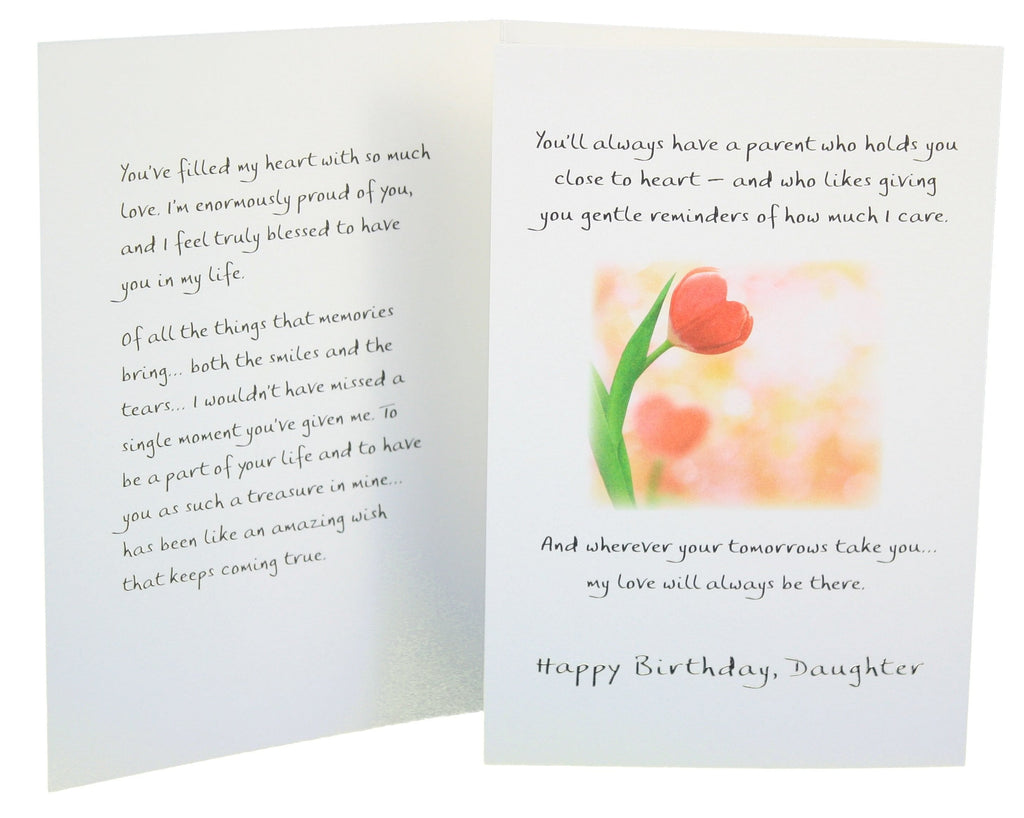 You've filled my heart with so much
love. I'm enormously proud of you,
and I feel truly blessed to have
you in my life.
Of all the things that memories
bring... both the smiles and the
tears... I wouldn't have missed a
single moment you've given me. To
be a part of your life and to have
you as such a treasure in mine...
has been like an amazing wish
that keeps coming true.
You'll always have a parent who holds you
close to heart — and who likes giving
you gentle reminders of how much I care.
And wherever your tomorrows take you...
my love will always be there.
Happy Birthday, Daughter